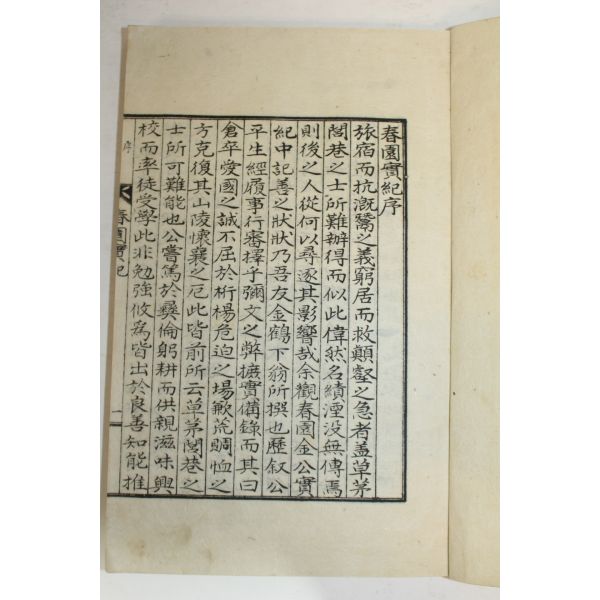 春園實紀序
旅宿而抗漑鬵之義窮居而救顚壑之急者盖草茅
閭巷之士所難辦得而似此偉然名績湮没無傳焉
則後之人從何以尋逐其影響哉余觀春園金公實
紀中記善之狀狀乃吾友金鶴下翁所撰也歷叙公
平生經履事行審擇乎彌文之弊摭實搆錄而其曰
倉卒愛國之誠不屈於桁楊危迫之場歉荒賙恤之
方克復其山陵懷襄之厄此皆前所云草茅閭巷之
士所可難能也公嘗篤於彛倫躬耕而供親滋味興
校而率徒受學此非勉強攸爲皆出於良善知能推
春園實紀
序
一